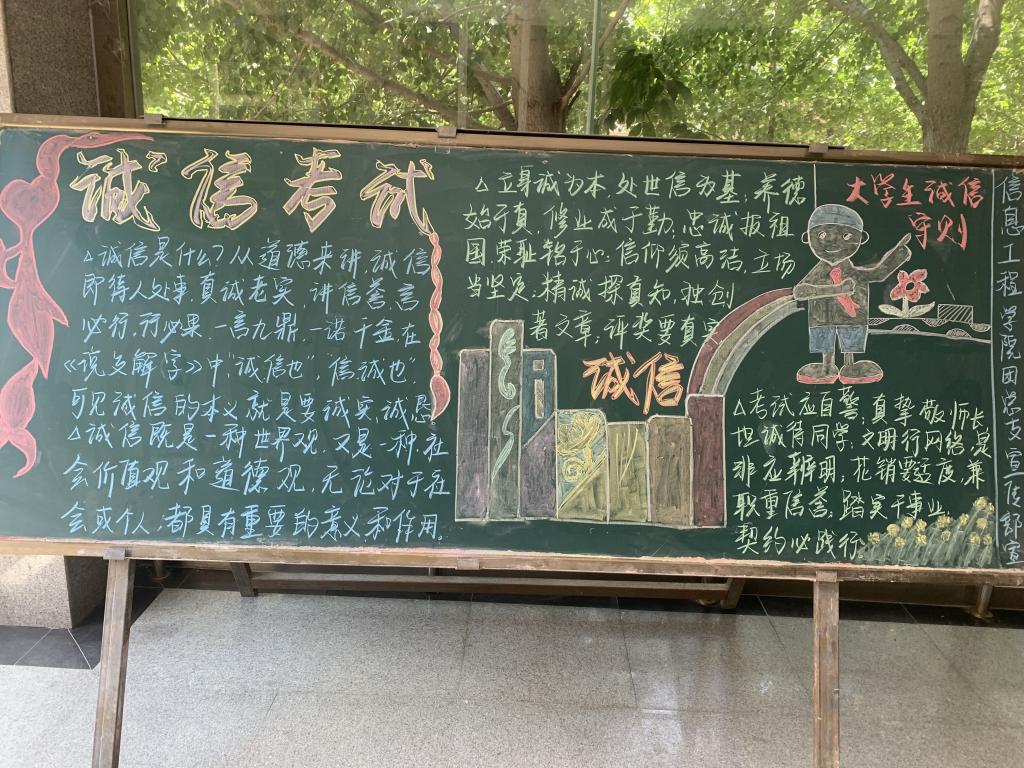 诚信考试
△诚信是什么?从道德来讲,诚信
即待人处事真诚老实,讲信誉,言
必行,行必果,一言九鼎,一诺千金,在
《说文解字》中"诚信也","信诚也",
可见诚信的本义就是要诚实,诚恳
△诚信既是一种世界观,又是一种社
会价值观和道德观,无论对于社
会或个人,都具有重要的意义和作用。
△立身诚为本,处世信为基,养德
始于真,修业成于勤,忠诚报祖
国,荣耻铭于心;信仰须高洁,立场
当坚定,精诚探真知,独创
著文章,评奖要真实
诚信
大学生诚信
守则
△考试应自警,真挚敬师长
坦诚待同学,文明行网络,是
非应辨明,花销要适度,兼
职重信誉,踏实干事业,
契约必践行
信息工程学院团总支宣传部宣